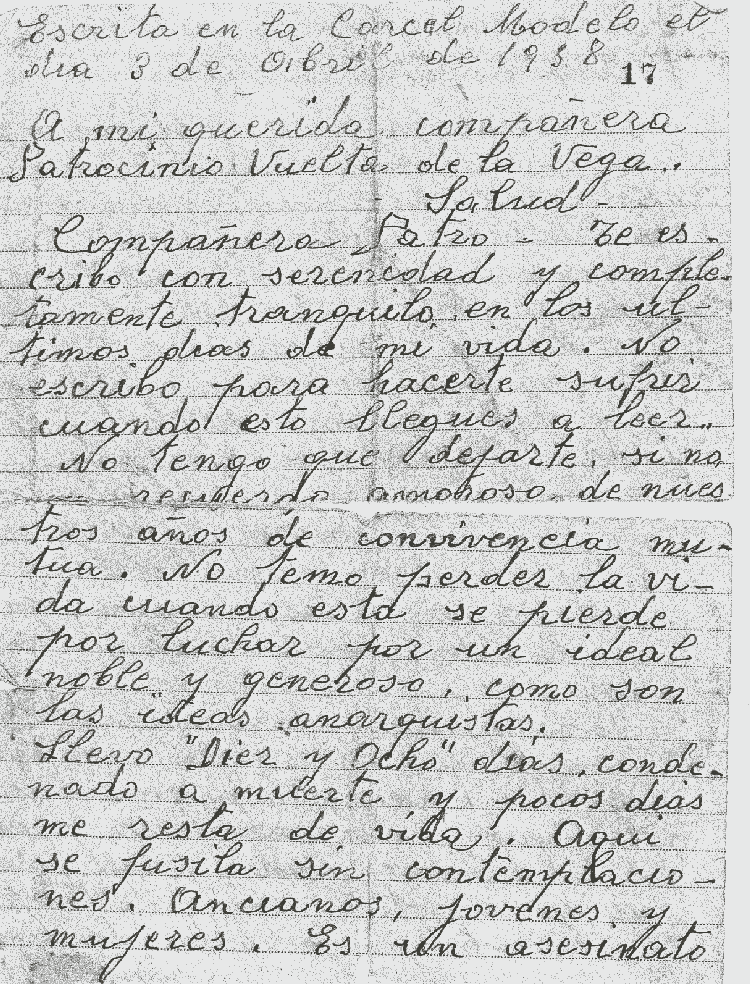 Escrita en la Carcel Modelo el
dia 3 de Abril de 1938
17
A mi querida compañera
Patrocinio Vuelta de la Vega.
Salud -
Compañera Patro - Te es-
cribo con serenidad y comple-
tamente tranquilo en los ul-
timos dias de mi vida. No
escribo para hacerte sufrir
cuando esto llegues a leer..
No tengo que dejarte, si no
recuerdo amoroso de nues
tros años de convivencia mu-
tua. No temo perder la vi-
da cuando esta se pierde
por luchar por un ideal
noble y generoso, como son
las ideas anarquistas.
Llevo "Diez y Ocho" dias, conde-
nado a muerte y pocos dias
me resta de vida. Aqui
se fusila sin contemplacio-
nes. Ancianos, jovenes y
mujeres. Es un asesinato